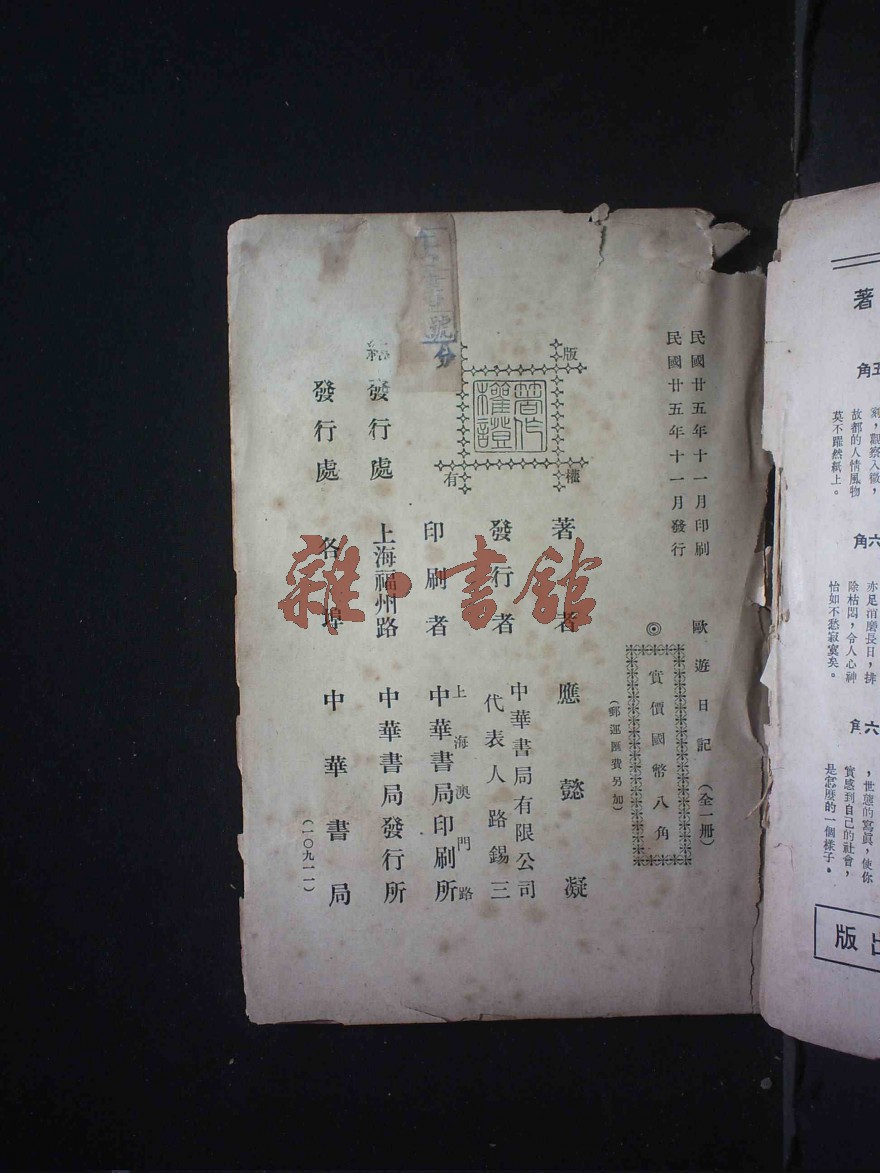 民國廿五年十一月印刷
民國廿五年十一月發行
歐遊日記（全一册）
◎
實價國幣八角
（郵運匯費另加）
版權
有
著作權證
著者 應懿凝
發行者 中華書局有限公司
代表人 路錫三
印刷者 上海澳門路
中華書局印刷所
總發行處 上海福州路 中華書局發行所
發行處 各埠 中華書局
（一〇九一一）
雜·書館
號
著
五角
刻，觀察入微，
故都的人情風物
莫不躍然紙上。
六角
亦足消磨長日，排
除枯悶，令人心神
怡如不愁寂寞矣。
六角
，世態的寫眞，使你
實感到自己的社會，
是怎麽的一個樣子。
出版